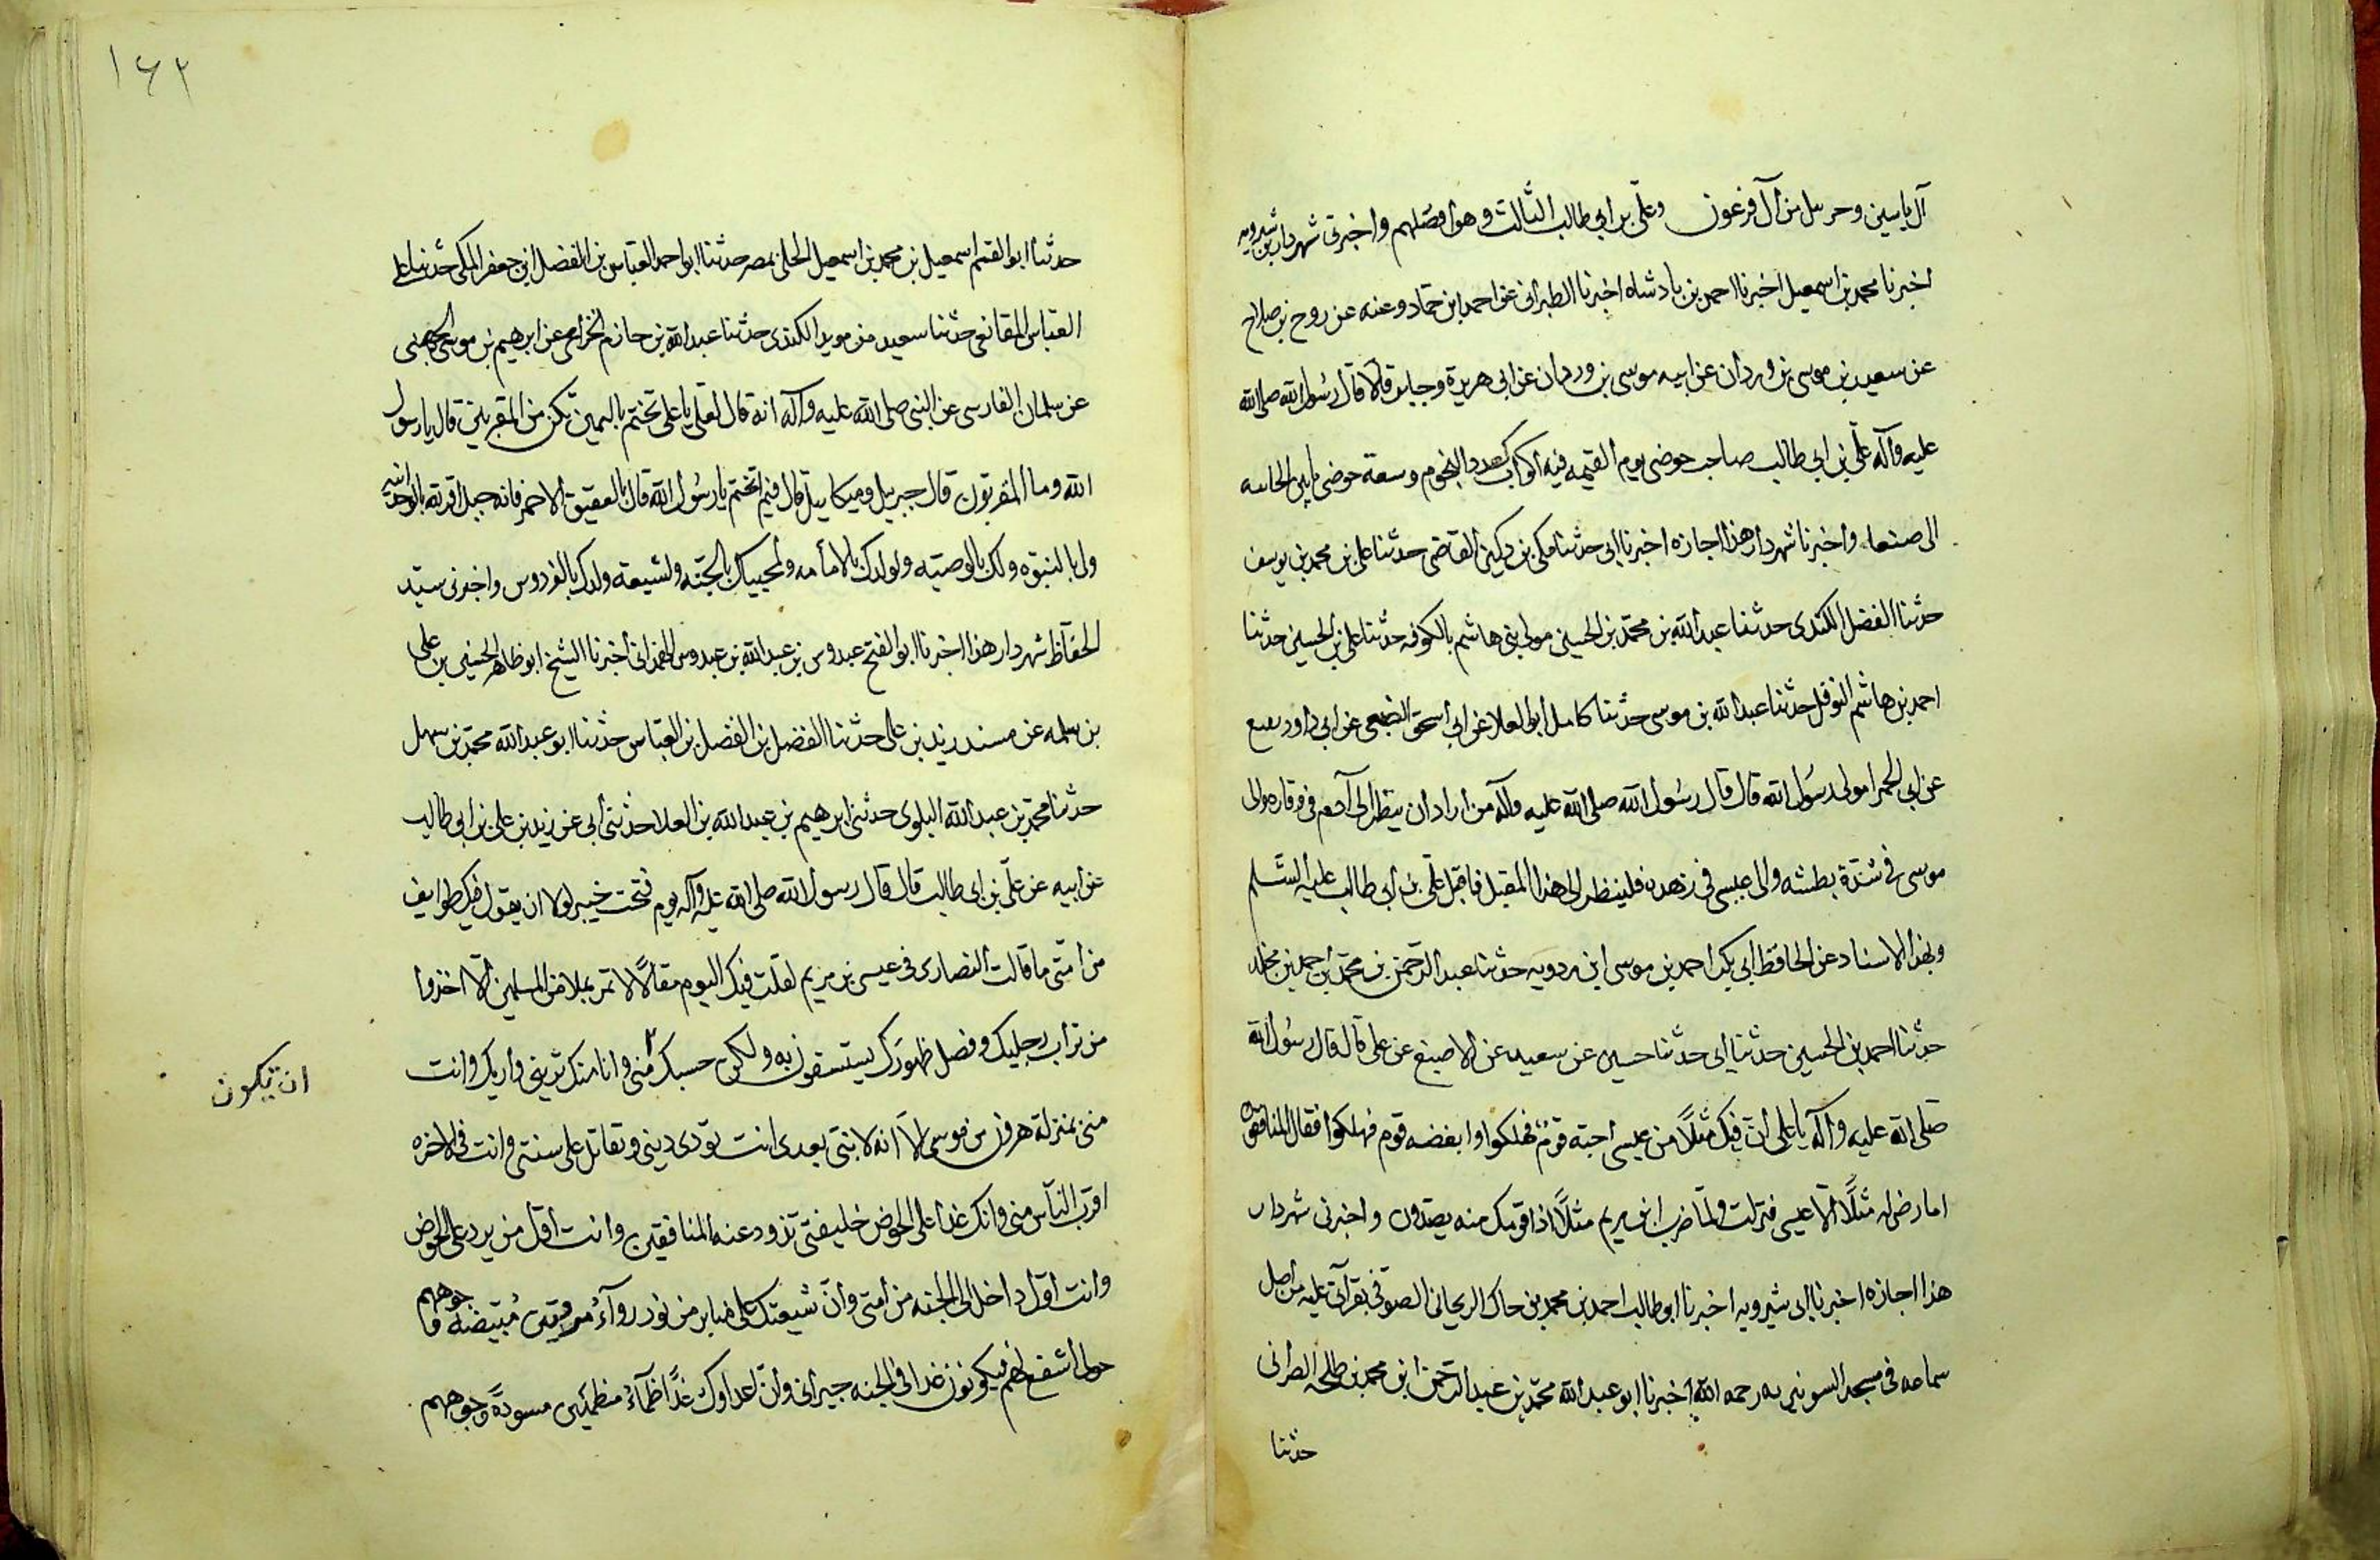 آل ياسين وحرسل من آل فرعون وعلى بن ابى طالب الثالث وهو افضلهم واخبرنى شهردار بن شيرويه
اخبرنا محمد بن اسمعيل اخبرنا احمد بن بادشاه اخبرنا الطبرانى عن احمد ابن حماد وعنه عن روح بن صلاح
عن سعيد بن موسى بن وردان عن ابيه موسى بن وردان عن ابى هريرة وجابر قالا قال رسول الله صلى الله
عليه وآله على بن ابى طالب صاحب حوضى يوم القيمه فيه اكواب كعدد النجوم وسعة حوضى ما بين الجابيه
الى صنعا واخبرنا شهردار هذا اجازه اخبرنا ابى حدثنا مكى بن دكين القاضى حدثنا على بن محمد بن يوسف
حدثنا الفضل الكندى حدثنا عبد الله بن محمد بن الحسين مولى بنى هاشم بالكوفه حدثنا على بن الحسين حدثنا
احمد بن هاشم النوفلى حدثنا عبد الله بن موسى حدثنا كامل ابو العلا عن ابى اسحق الضبعى عن ابى داود نفيع
عن ابى الحمرا مولى رسول الله قال قال رسول الله صلى الله عليه وآله من اراد ان ينظر الى آدم فى وقاره والى
موسى فى شدة بطشه والى عيسى فى زهده فلينظر الى هذا المقبل فاقبل على بن ابى طالب عليه السلم
وبهذا الاسناد عن الحافظ ابى بكر احمد بن موسى ابن مردويه حدثنا عبد الرحمن بن محمد بن احمد بن مخلد
حدثنا احمد بن الحسين حدثنا ابى حدثنا حسين عن سعيد عن الاصبغ عن على قال قال رسول الله
صلى الله عليه وآله يا على ان فيك مثلا من عيسى احبه قوم فهلكوا وابغضه قوم فهلكوا فقال المنافقون
اما رضى له مثلا الا عيسى فنزلت ولما ضرب ابن مريم مثلا اذا قومك منه يصدون واخبرنى شهردار
هذا اجازه اخبرنا ابى شيرويه اخبرنا ابو طالب احمد بن محمد بن خاك الريحانى الصوفى بقرآتى عليه من اصل
سماعه فى مسجد الشونيزيه رحمه الله اخبرنا ابو عبد الله محمد بن عبد الرحمن ابن محمد بن طلحه الصرانى
حدثنا
١٦٢
حدثنا ابو القسم اسمعيل بن محمد بن اسمعيل الحلى بمصر حدثنا ابو احمد العباس بن الفضل ابن جعفر المكى حدثنا على
العباس المقانعى حدثنا سعيد من مويد الكندى حدثنا عبد الله بن حازم الخزاعى عن ابرهيم بن موسى الجهنى
عن سلمان الفارسى عن النبى صلى الله عليه وآله انه قال لعلى يا على تختم باليمين تكن من المقربين قال يا رسول
الله وما المقربون قال جبريل وميكاييل قال فبم اتختم يا رسول الله قال بالعقيق الاحمر فانه جبل اقر لله بالوحدانيه
ولى بالنبوه ولك بالوصيه ولولدك بالامامه ولمحبيك بالجنه ولشيعه ولدك بالفردوس واخبرنى سيد
الحفاظ شهردار هذا اخبرنا ابو الفتح عبدوس بن عبد الله بن عبدوس الهمدانى اخبرنا الشيخ ابو طاهر الحسين بن على
بن سلمه عن مسند زيد بن على حدثنا الفضل بن الفضل بن العباس حدثنا ابو عبد الله محمد بن سهل
حدثنا محمد بن عبد الله البلوى حدثنى ابرهيم بن عبيد الله بن العلا حدثنى ابى عن زيد بن على بن ابى طالب
عن ابيه عن على بن ابى طالب قال قال رسول الله صلى الله عليه وآله يوم فتحت خيبر لولا ان يقول فيك طوايف
من امتى ما قالت النصارى فى عيسى بن مريم لقلت فيك اليوم مقالا لا تمر بملا من المسلمين الا اخذوا
من تراب رجليك وفضل طهورك يستشفون به ولكن حسبك منى وانا منك ترثنى وارثك وانت
ان تكون
منى بمنزلة هرون من موسى الا انه لا نبى بعدى انت تودى دينى وتقاتل على سنتى وانت فى الاخره
اقرب الناس منى وانك غدا على الحوض خليفتى تذود عنه المنافقين وانت اول من يرد على الحوض
وانت اول داخل الى الجنه من امتى وان شيعتك على منابر من نور رواء مرويين مبيضه وجوههم
حولى اشفع لهم فيكونون غدا فى الجنه جيرانى وان اعداوك غدا ظمآء مظمئين مسودة وجوههم